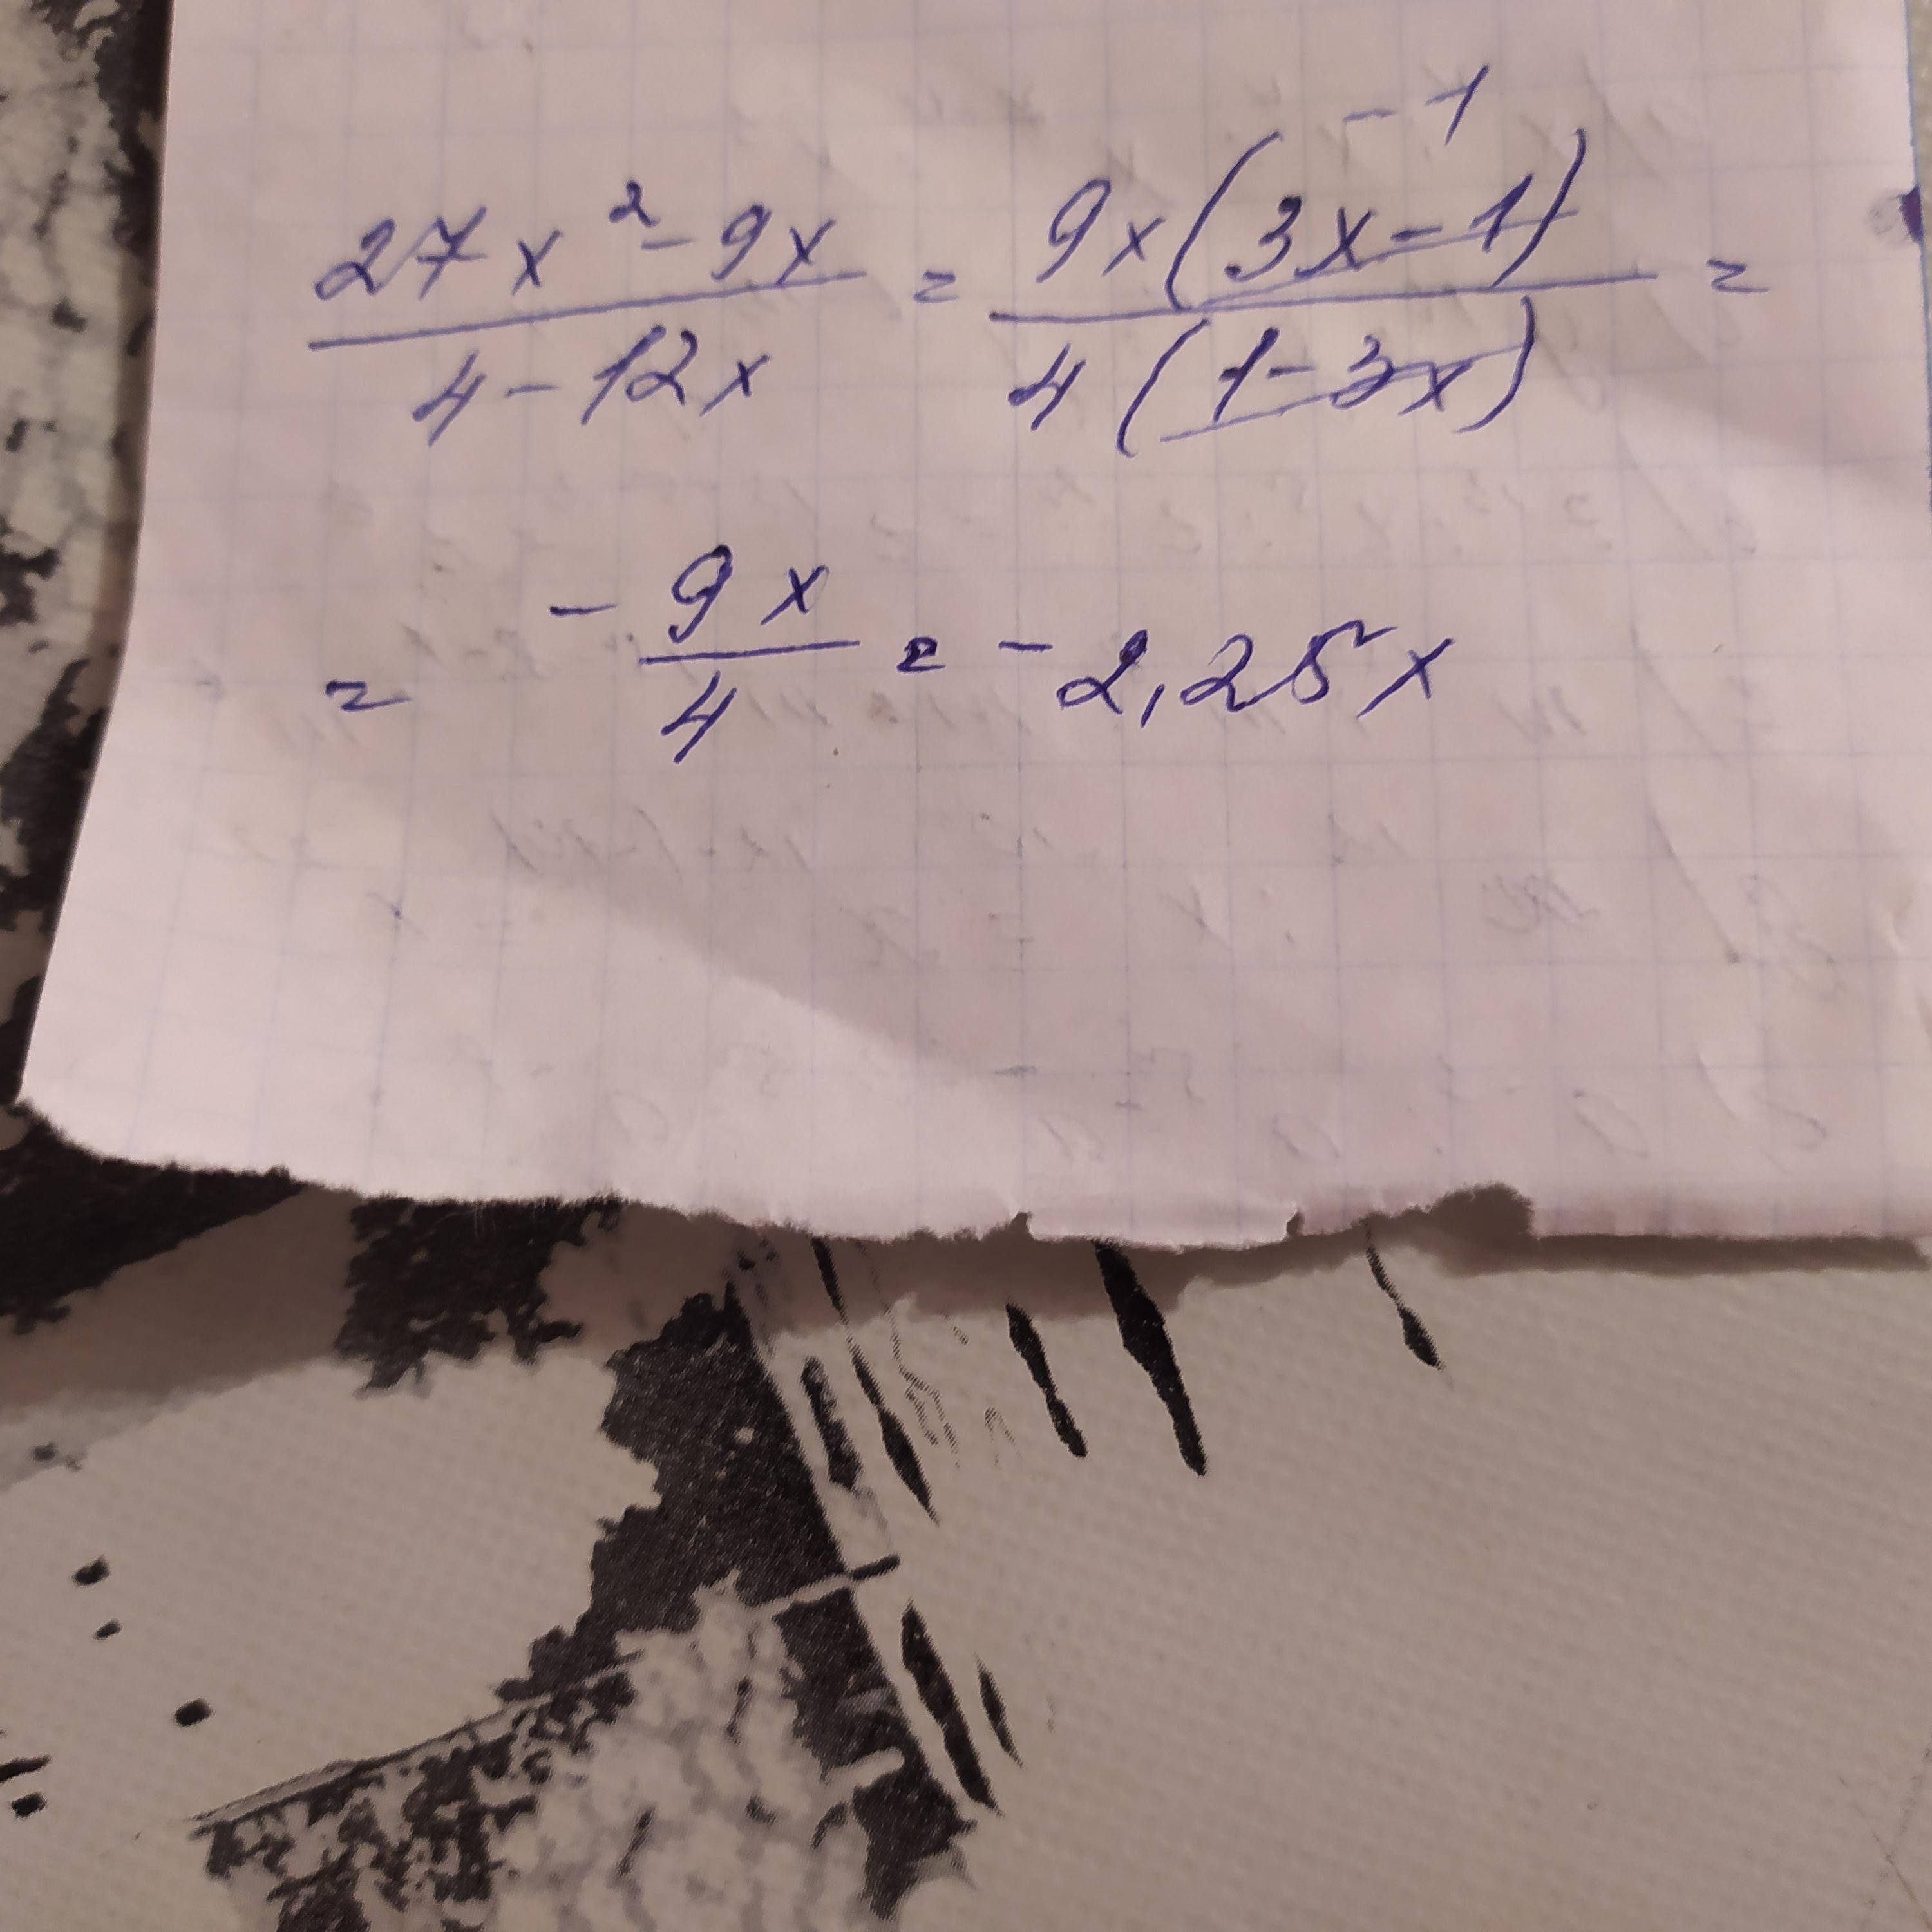 (27x² - 9x)/(4 - 12x) = (9x(3x - 1)⁻¹)/(4(1 - 3x)) =
= - 9x/4 = - 2,25x